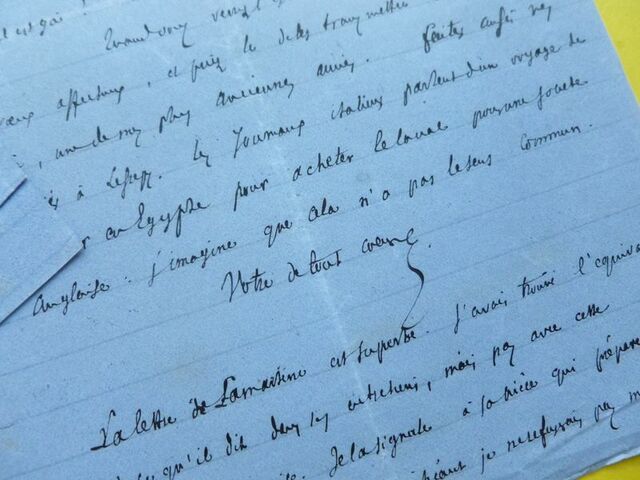 est gai
Quand vous verrez l'
vœux affectueux, et puis le
, une de mes plus anciennes amies. Faites aussi mes
à Lesseps. Les Journaux italiens parlent d'un voyage de
en Egypte pour acheter le canal pour une société
Anglaise. j'imagine que cela n'a pas le sens commun.
Votre de tout cœur
La lettre de Lamartine est superbe. J'avais trouvé l'équiva
qu'il dit dans les entretiens, mais pas avec cette
Je la signale à sa nièce qui prépare
je ne